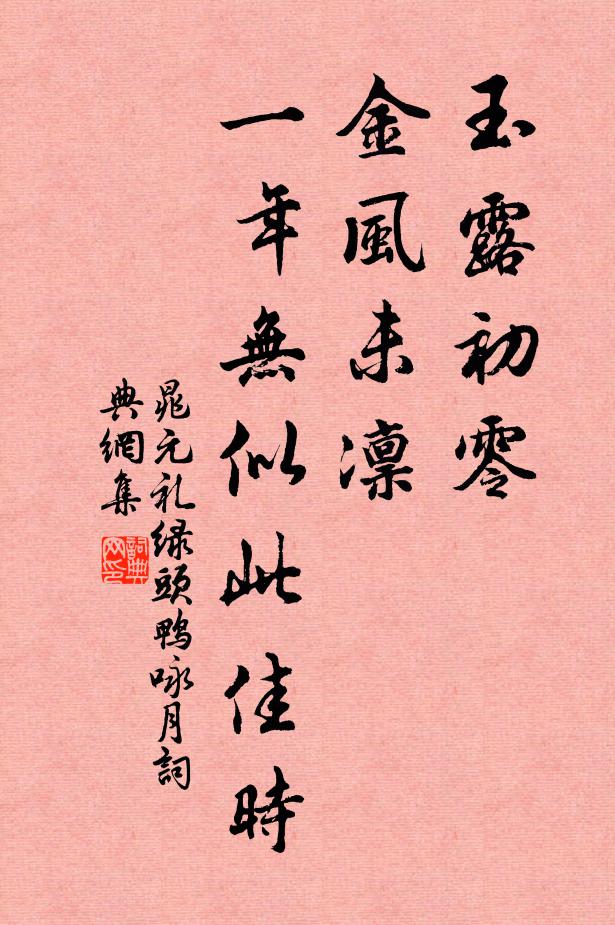 玉露初零
金風未凜
一年無似此佳時
晁元礼緑頭鴨咏月詞
典網集
詞典網印